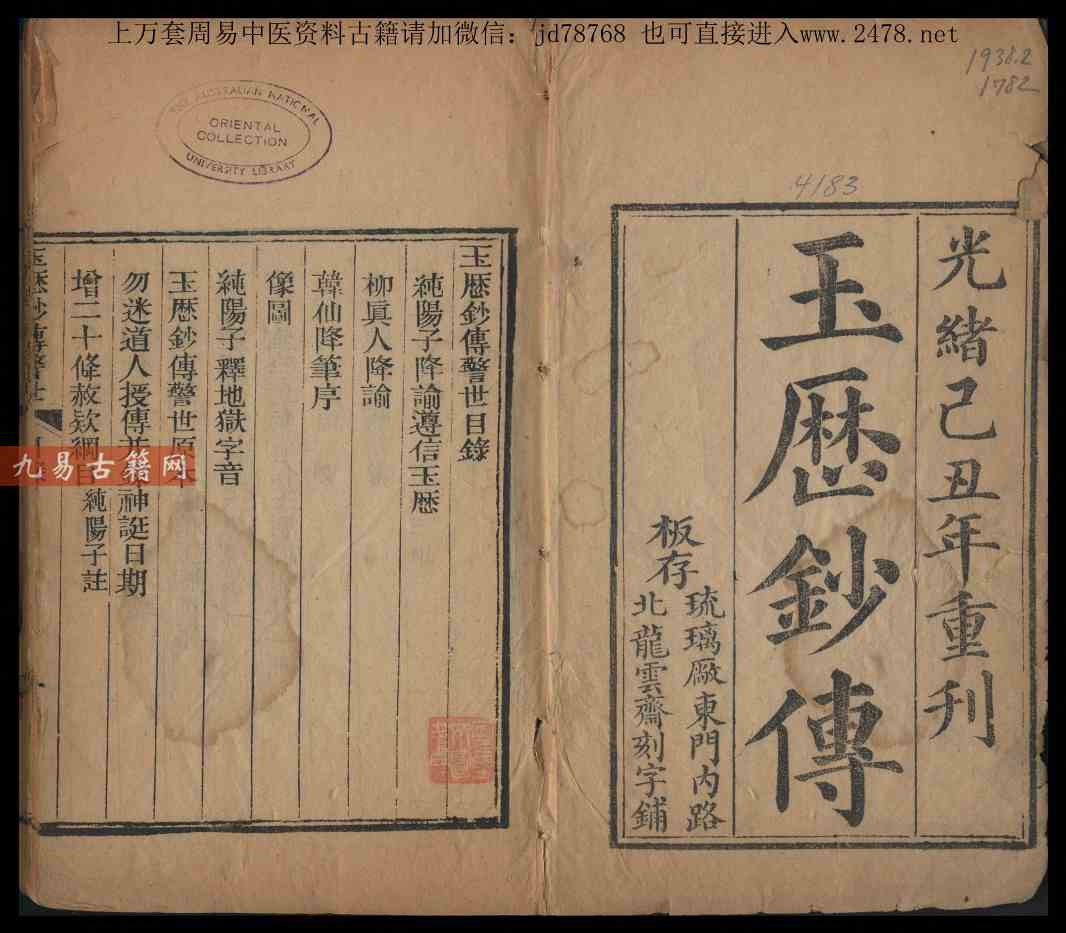 上万套周易中医资料古籍请加微信：jd78768 也可直接进入www.2478.net
1938.2
1782
4183
光緒己丑年重刊
玉厯鈔傳
板存
琉璃厰東門內路
北龍雲齋刻字鋪
THE AUSTRALIAN NATIONAL
ORIENTAL
COLLECTION
UNIVERSITY LIBRARY
玉厯鈔傳警世目錄
純陽子降諭遵信玉厯
柳眞人降諭
韓仙降筆序
像圖
純陽子釋地獄字音
玉厯鈔傳警世原本
勿迷道人授傳并神誕日期
增二十條赦欵綱目純陽子註
玉厯鈔傳警世
九易古籍网